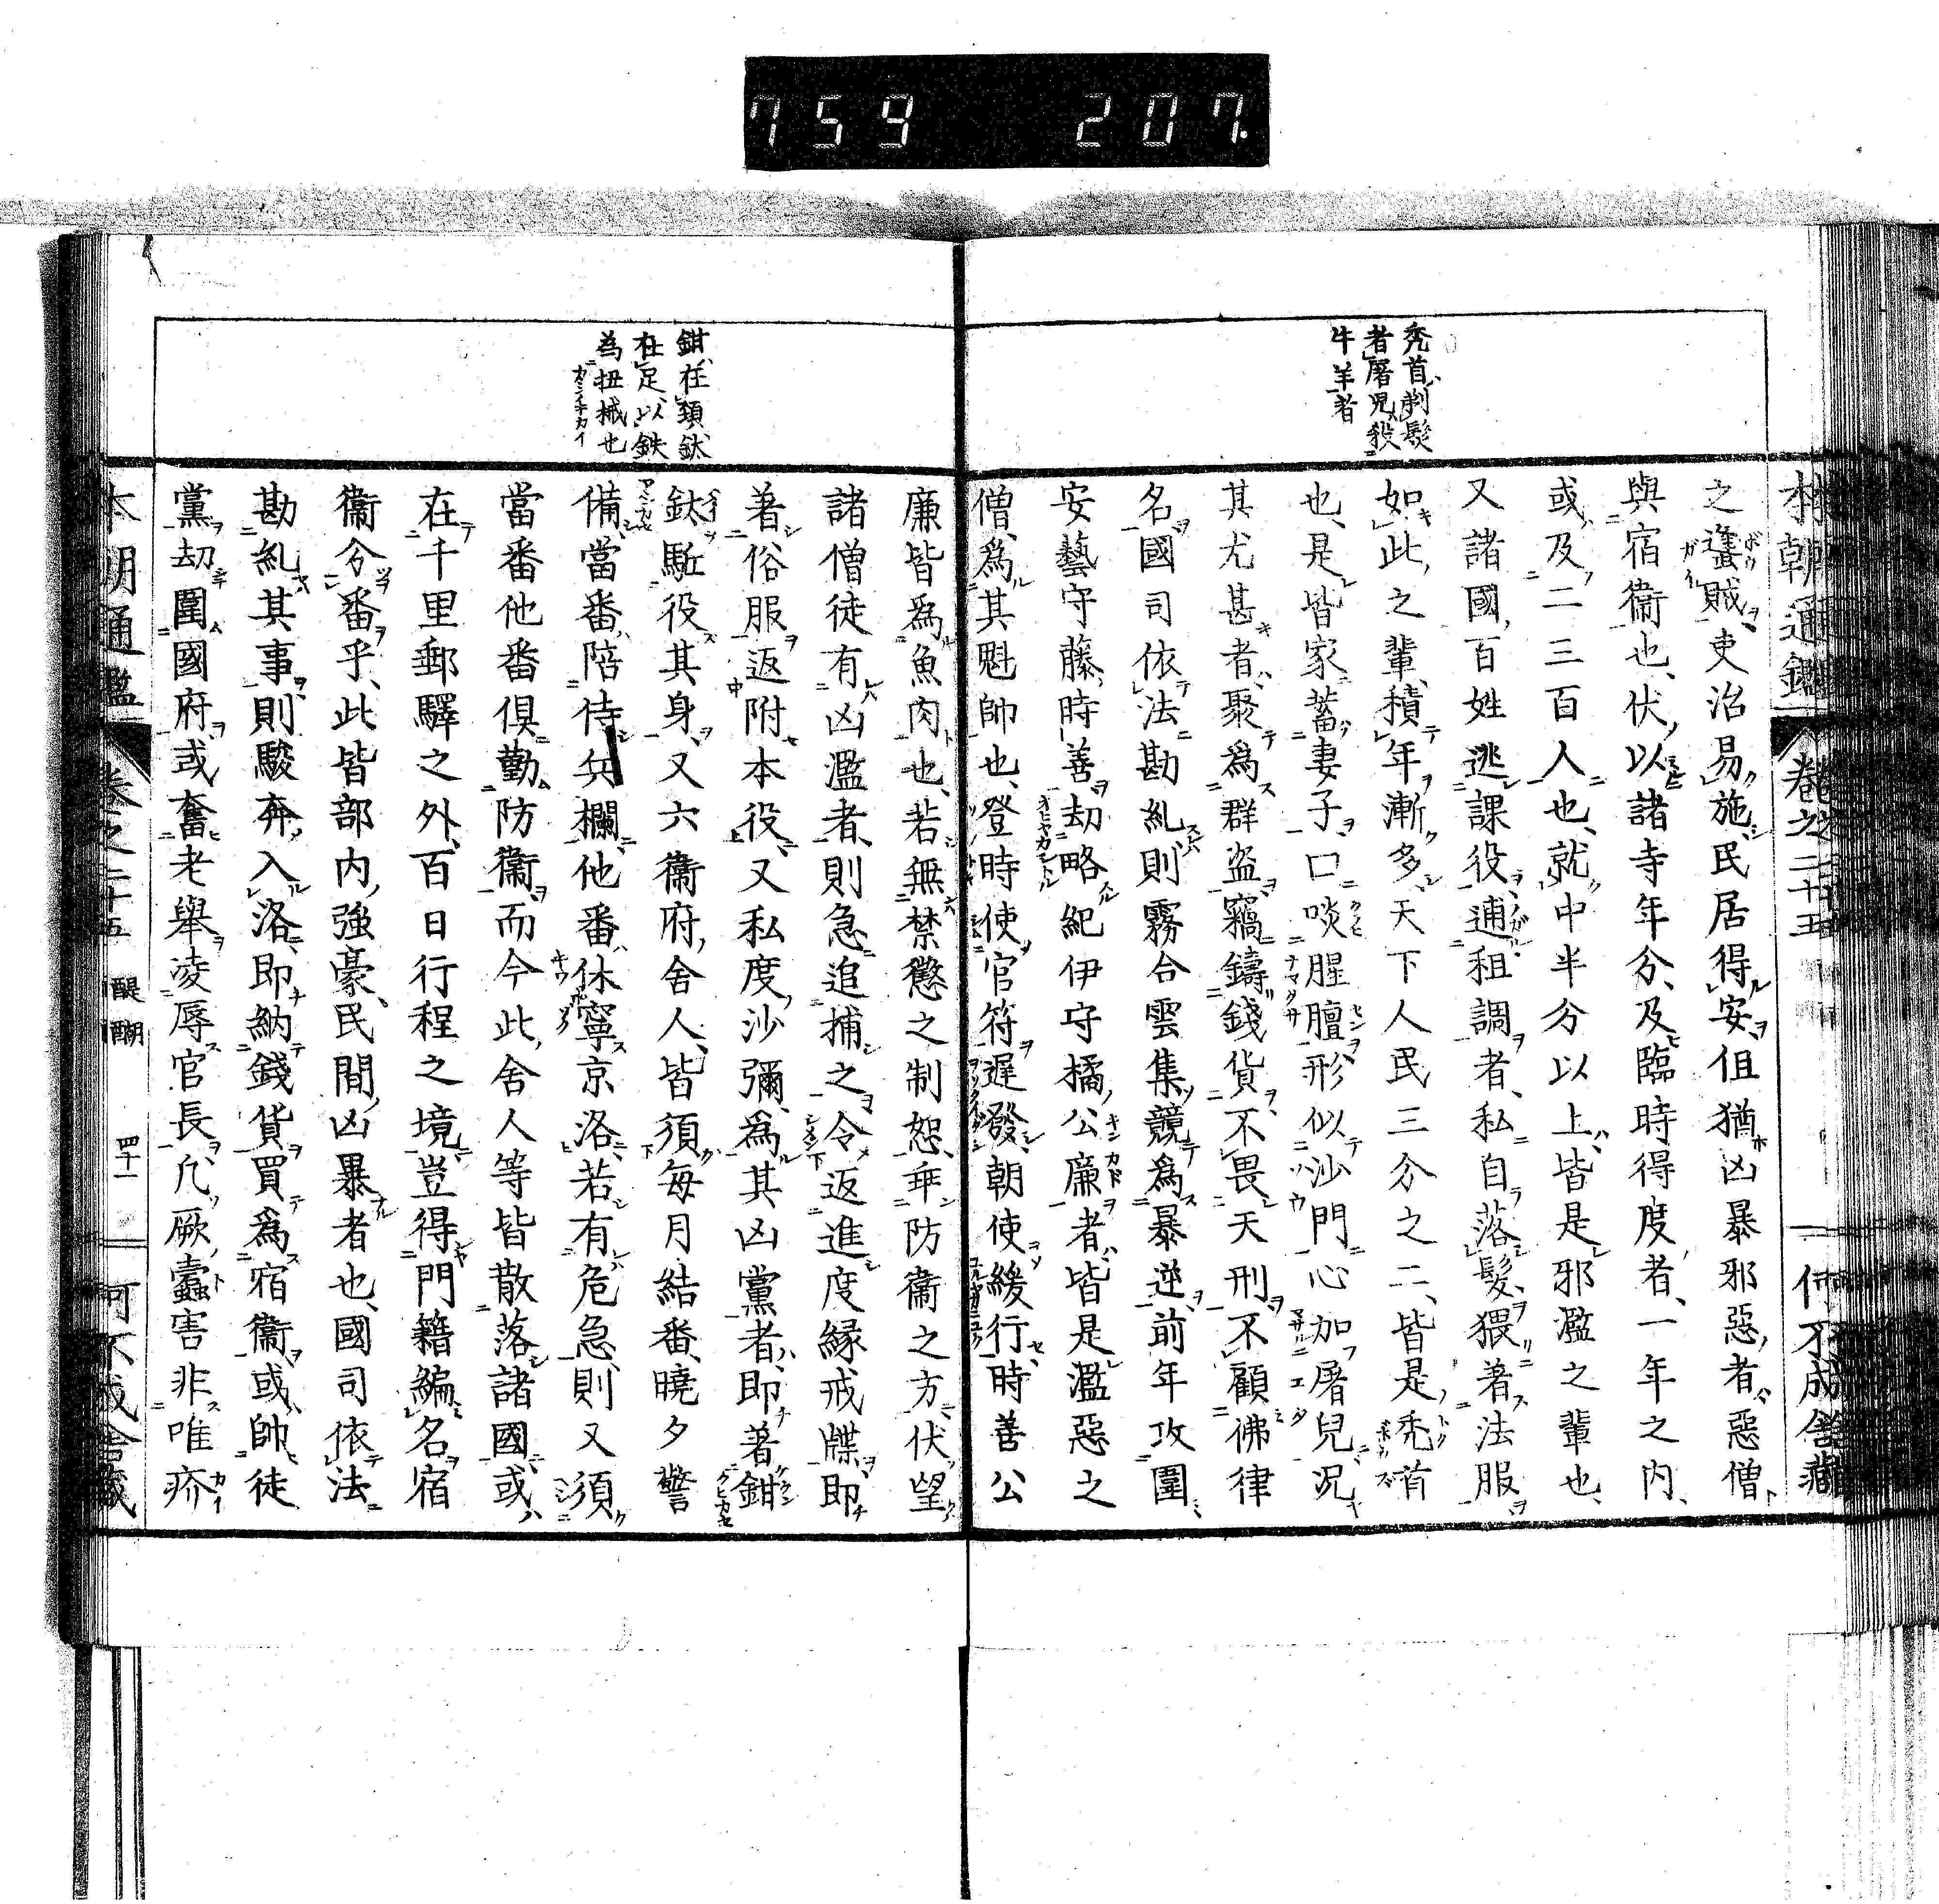 759 207.
禿首剃髮
者屠児殺
牛羊者
本朝通鑑 卷之二十五 何不成舍藏
之蝥賊吏治易施民居得安但猶凶暴邪惡者惡僧
與宿衞也伏以諸寺年分及臨時得度者一年之内
或及二三百人也就中半分以上皆是邪濫之輩也
又諸國百姓逃課役逋租調者私自落髮猥著法服
如此之輩積年漸多天下人民三分之二皆是禿首
也是皆家蓄妻子口啖腥膻形似沙門心加屠兒況
其尤甚者聚爲群盗竊鑄錢貨不畏天刑不顧佛律
名國司依法勘糺則霧合雲集競爲暴逆前年攻圍
安藝守藤時善劫略紀伊守橘公廉者皆是濫惡之
僧爲其魁帥也登時使官符遲發朝使緩行時善公
鉗在頸釱
在足以鉄
為扭械也
廉皆爲魚肉也若無禁懲之制恕乖防衞之方伏望
諸僧徒有凶濫者則急追捕之令返進度縁戒牒即
著俗服返附本役又私度沙彌爲其凶黨者即著鉗
釱駈役其身又六衞府舍人皆須毎月結番曉夕警
備當番陪侍兵欄他番休寧京洛若有危急則又須
當番他番倶勤防衞而今此舍人等皆散落諸國或
在千里郵驛之外百日行程之境豈得門籍編名宿
衞分番乎此皆部内強豪民間凶暴者也國司依法
勘糺其事則駿奔入洛即納錢貨買爲宿衞或帥徒
黨劫圍國府或奮老舉凌辱官長凢厥蠹害非唯疥
本朝通鑑 卷之二十五 醍醐 四十一 何不成舍藏